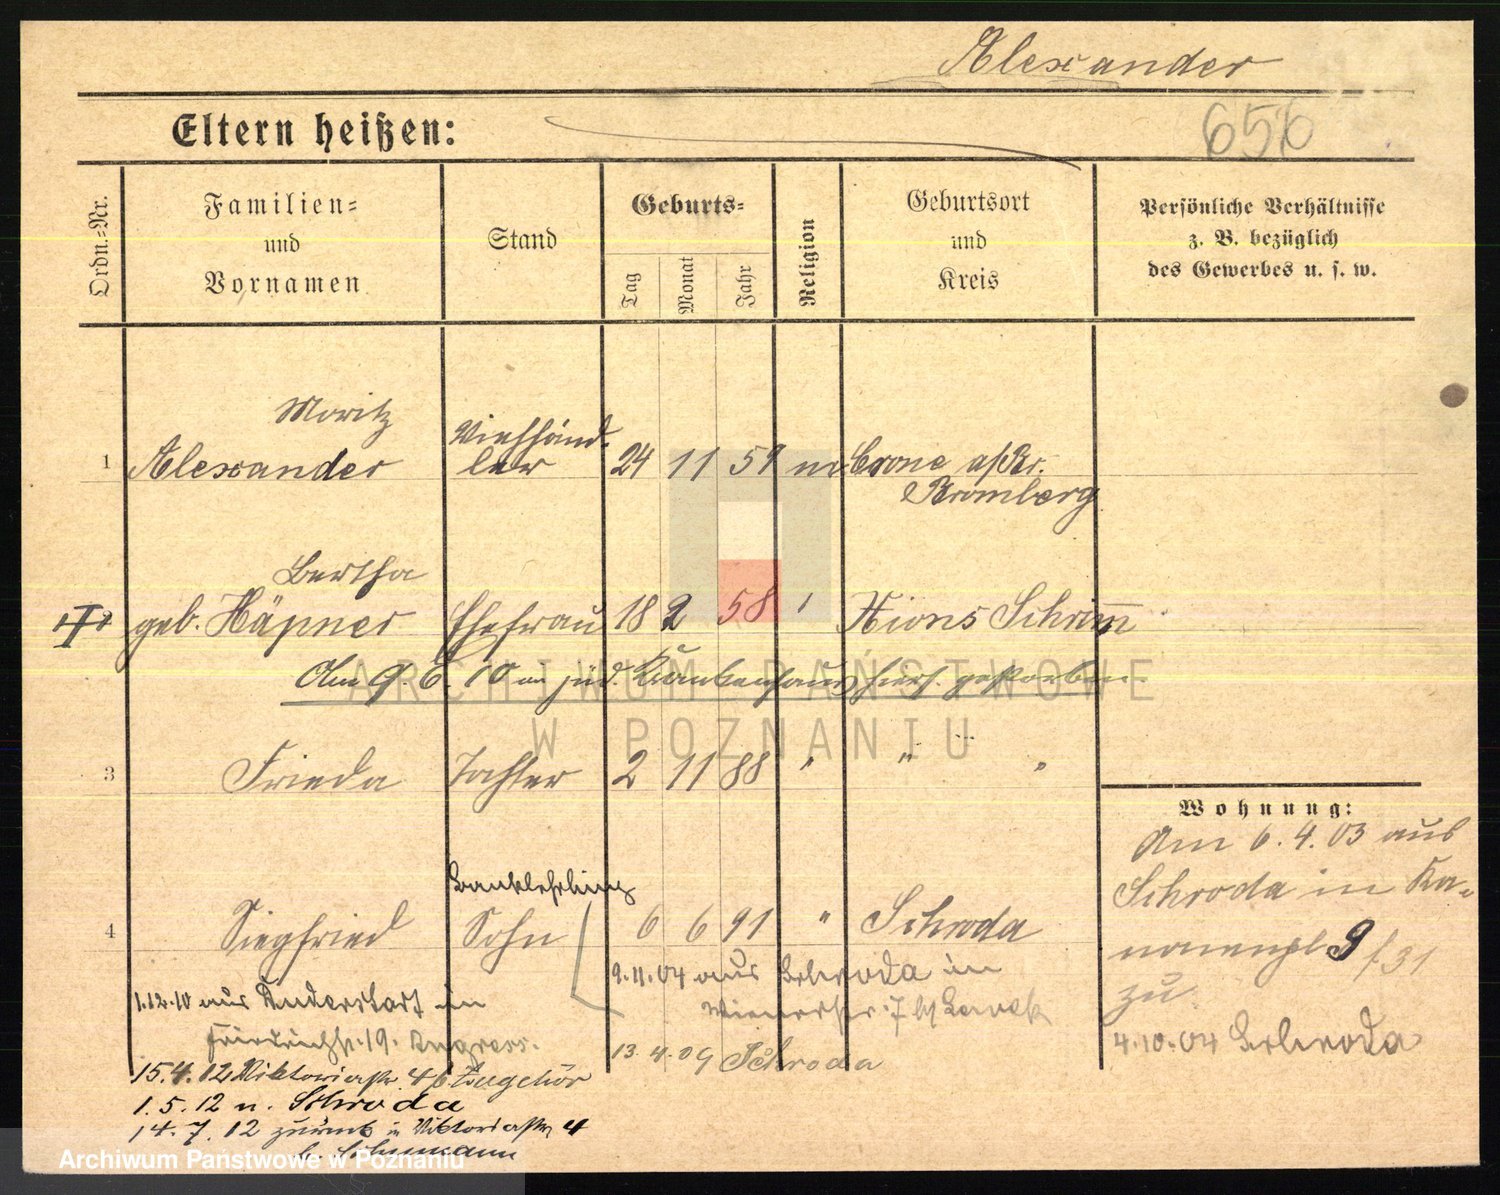 Alexander
Eltern heißen:
656
Ordn.-Nr.
Familien-
und
Vornamen
Stand
Geburts-
Tag
Monat
Jahr
Religion
Geburtsort
und
Kreis
Persönliche Verhältnisse
z. B. bezüglich
des Gewerbes u. s. w.
Moritz
1 Alexander Viehhänd-
ler 24 11 59 Crone a/Br.
Bromberg
Bertha
geb. Häpner Ehefrau 18 2 58 Xions Schrimm
Am 9 6. 10 im jüd. Krankenhaus hies. gestorben.
3 Frieda Tochter 2 11 88 " " "
Banklehrling
4 Siegfried Sohn 6 6 91 " Schroda
9.11.04 aus Schroda in
Wienerstr. 7
13.4.09 Schroda
1.12.10 aus in
Friedrichstr. 19.
15.4.12 Viktoriastr. 4
1.5.12 n. Schroda
14.7.12 zurück in Viktoriastr. 4
b. Schumann
Wohnung:
Am 6.4.03 aus
Schroda in Ka-
nonenpl 9
zu
4.10.04 Schroda
ARCHIWUM PAŃSTWOWE
W POZNANIU
Archiwum Państwowe w Poznaniu